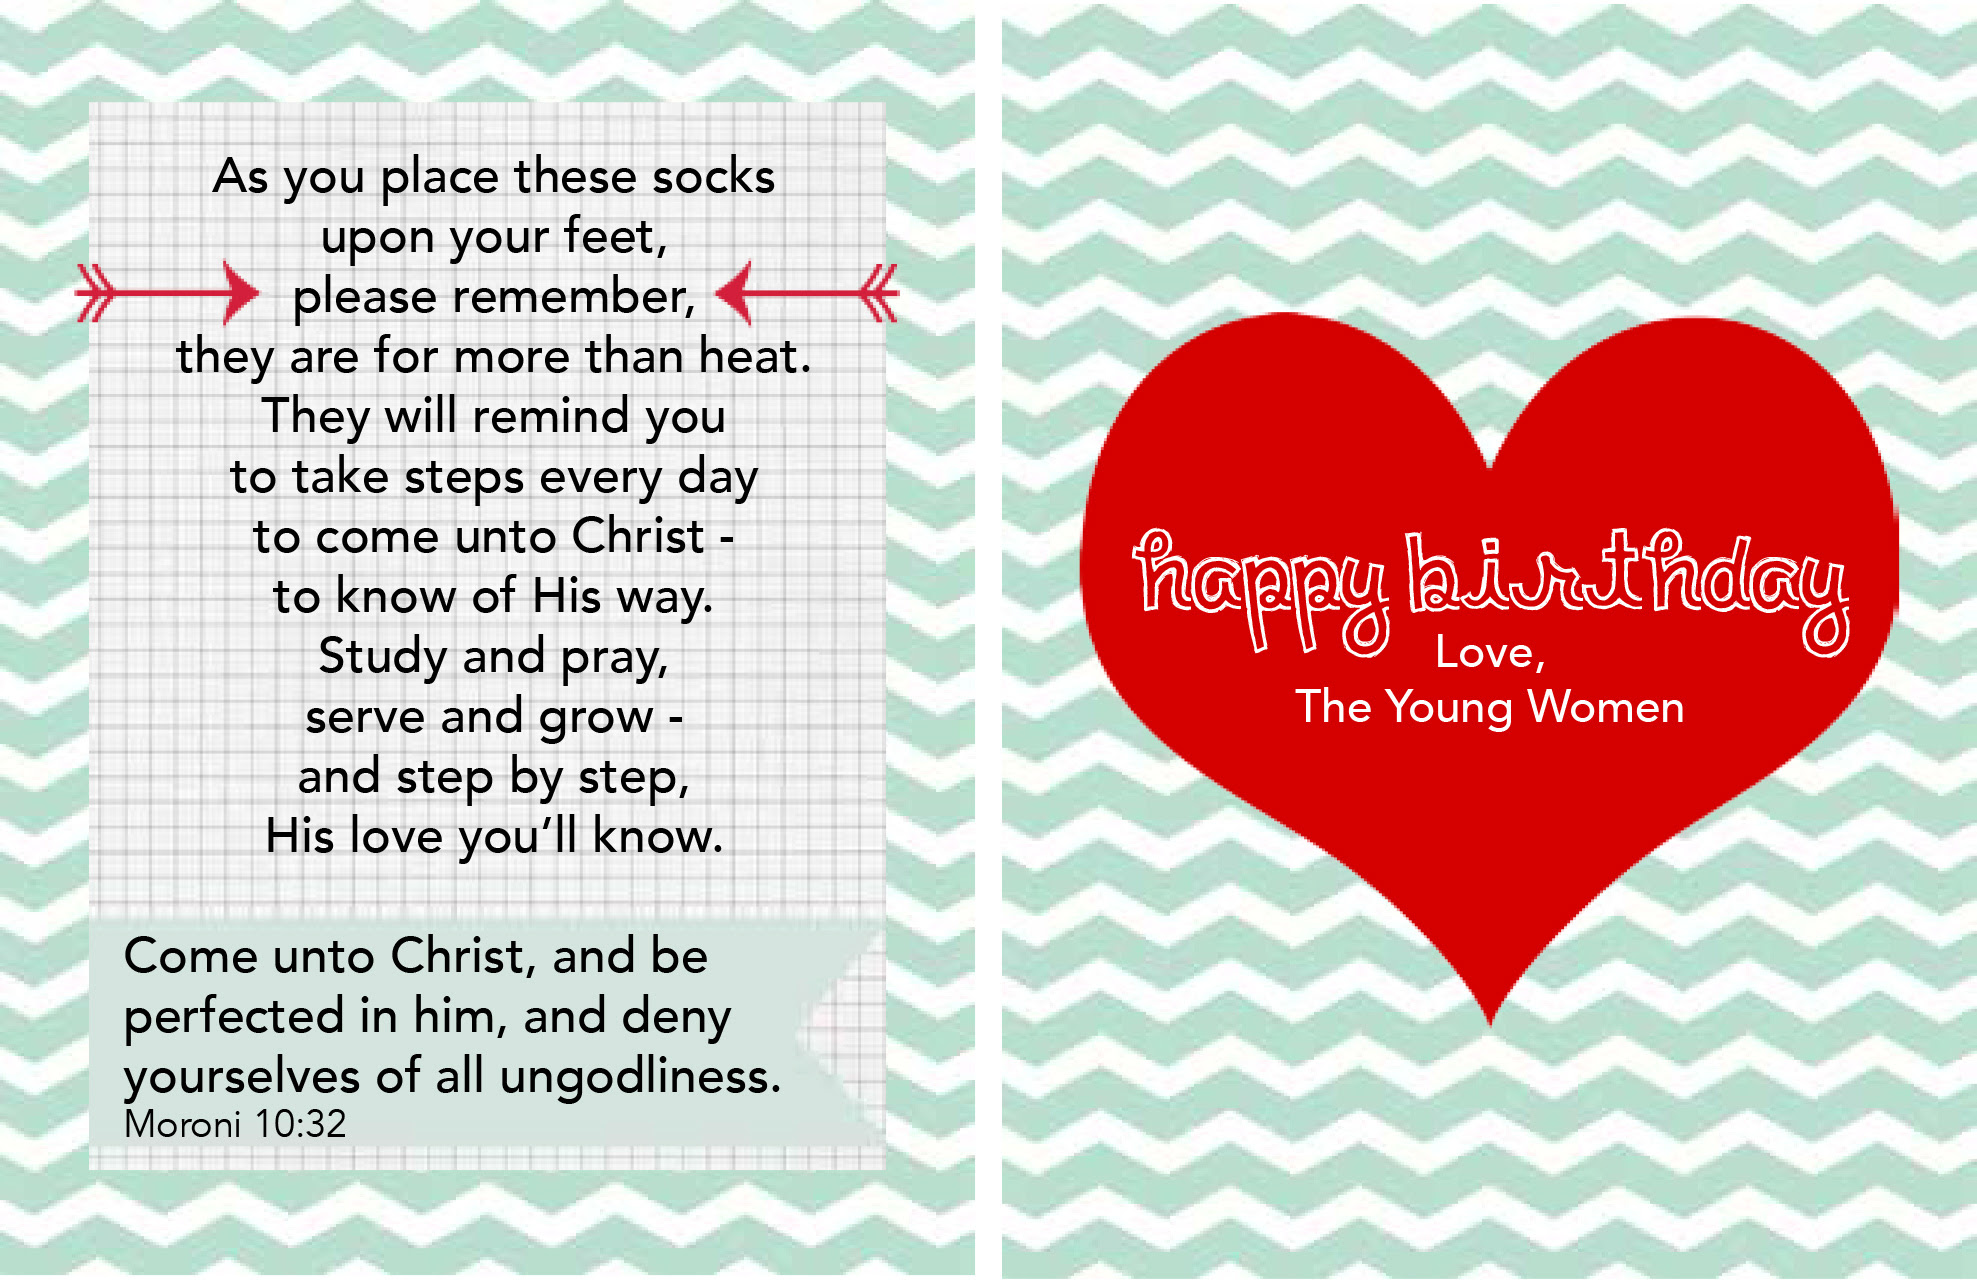 As you place these socks
upon your feet,
please remember,
they are for more than heat.
They will remind you
to take steps every day
to come unto Christ -
to know of His way.
Study and pray,
serve and grow -
and step by step,
His love you’ll know.
Come unto Christ, and be
perfected in him, and deny
yourselves of all ungodliness.
Moroni 10:32
happy birthday
Love,
The Young Women